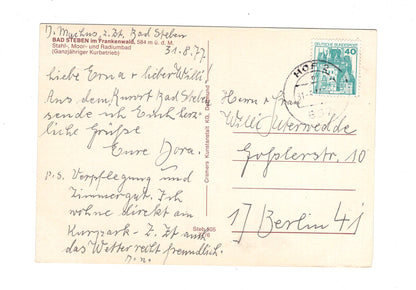 z. Zt. Bad Steben
BAD STEBEN im Frankenwald, 584 m ü. d. M.
Stahl-, Moor- und Radiumbad
(Ganzjähriger Kurbetrieb)
31.8.77
Liebe Erna u. lieber Willi!
Aus dem Kurort Bad Steben
sende ich Euch herz-
liche Grüße
Eure Dora.
P.S. Verpflegung und
Zimmer gut. Ich
wohne direkt am
Kurpark - Z. Zt. auch
das Wetter recht freundlich.
D. O.
Cramers Kunstanstalt KG, Dortmund
Steb 605
DEUTSCHE BUNDESPOST
40
HOF
Herrn u. Frau
Willi Uterwedde
Goßlerstr. 10
1) Berlin 41